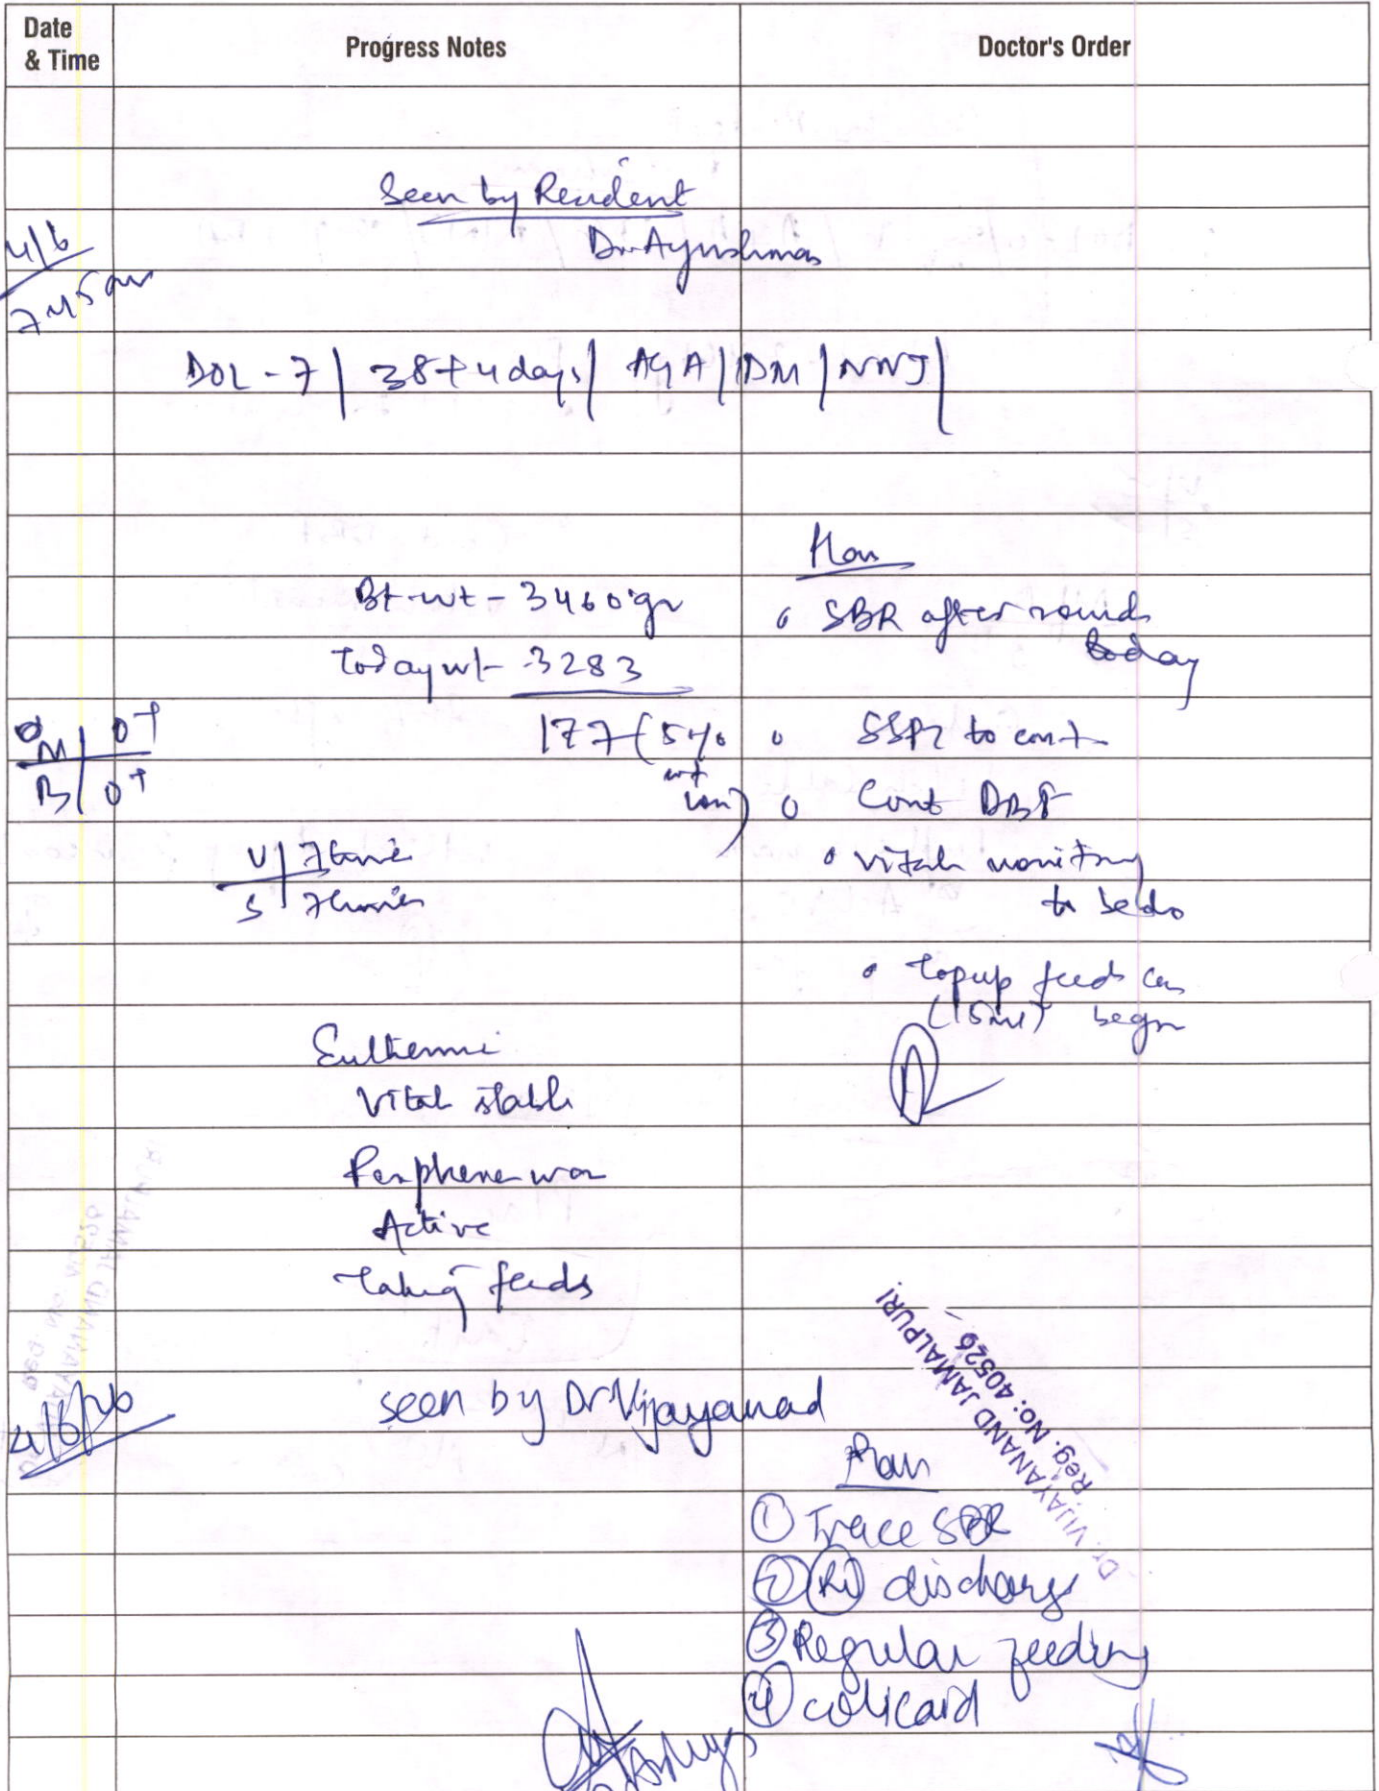 Date
& Time
Progress Notes
Doctor's Order
Seen by Resident
Dr. Ayushman
4/6
7 45 am
DOL - 7 | 38+4 days | AGA | IDM | NNJ |
Plan
Bt. wt - 3460 gr
SBR after rounds
today
Today wt - 3283
177 (5%
wt
loss)
SSPT to cont
M | O+
B | O+
Cont DBF
U | 7 times
S | 7 times
Vitals monitoring
to be do
Topup feeds can
(15ml) begin
Euthermic
Vitals stable
Peripheries warm
Active
Taking feeds
4/6/26
seen by Dr Vijayanad
Dr. VIJAYANAND JAMALPURI
Reg. No: 40526
Plan
① Trace SBR
② discharge
③ Regular feeding
④ colicaid